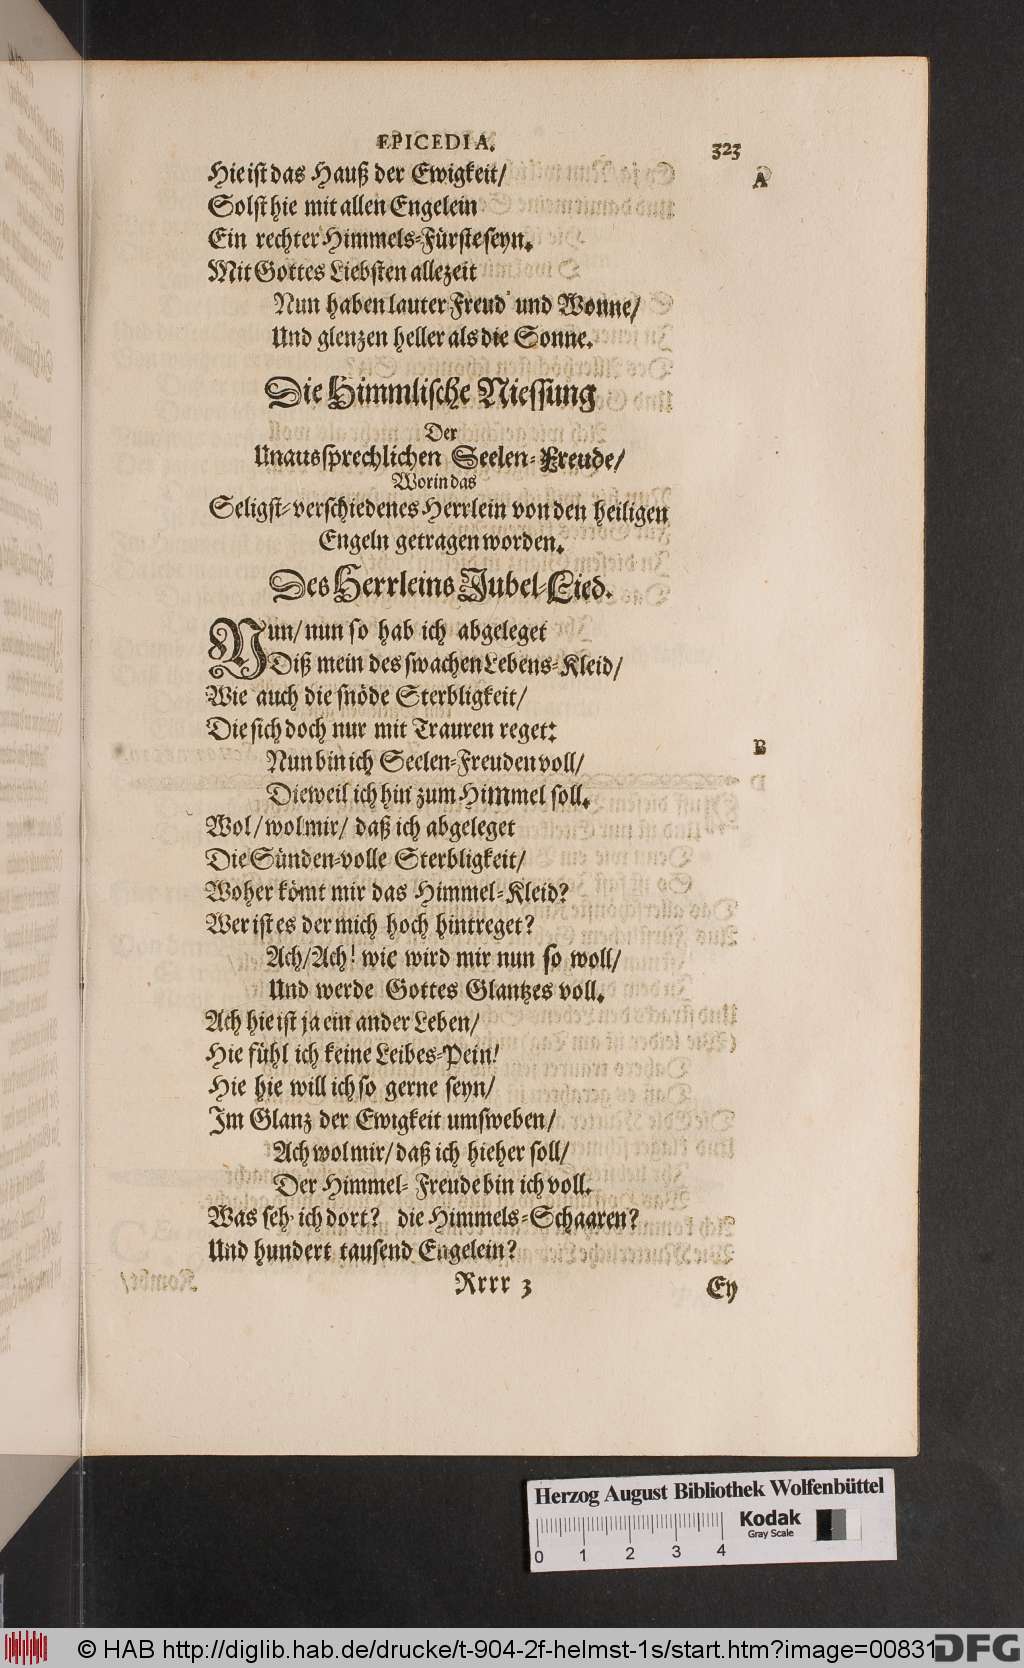 EPICEDIA. 323
Hie ist das Hauß der Ewigkeit/ A
Solst hie mit allen Engelein
Ein rechter Himmels-Fürste seyn.
Mit Gottes Liebsten allezeit
Nun haben lauter Freud' und Wonne/
Und glenzen heller als die Sonne.
Die Himmlische Niessung
Der
Unaussprechlichen Seelen-Freude/
Worin das
Seligst-verschiedenes Herrlein von den heiligen
Engeln getragen worden.
Des Herrleins Jubel-Lied.
Nun/ nun so hab ich abgeleget
Diß mein des swachen Lebens-Kleid/
Wie auch die snöde Sterbligkeit/
Die sich doch nur mit Trauren reget:
B
Nun bin ich Seelen-Freuden voll/
Dieweil ich hin zum Himmel soll.
Wol/ wol mir/ daß ich abgeleget
Die Sünden-volle Sterbligkeit/
Woher kömt mir das Himmel-Kleid?
Wer ist es der mich hoch hintreget?
Ach/ Ach! wie wird mir nun so woll/
Und werde Gottes Glantzes voll.
Ach hie ist ja ein ander Leben/
Hie fühl ich keine Leibes-Pein!
Hie hie will ich so gerne seyn/
Im Glanz der Ewigkeit umsweben/
Ach wol mir/ daß ich hieher soll/
Der Himmel-Freude bin ich voll.
Was seh' ich dort? die Himmels-Schaaren?
Und hundert tausend Engelein?
Rrrr 3 Ey
Herzog August Bibliothek Wolfenbüttel
Kodak
Gray Scale
0 1 2 3 4
© HAB http://diglib.hab.de/drucke/t-904-2f-helmst-1s/start.htm?image=00831
DFG